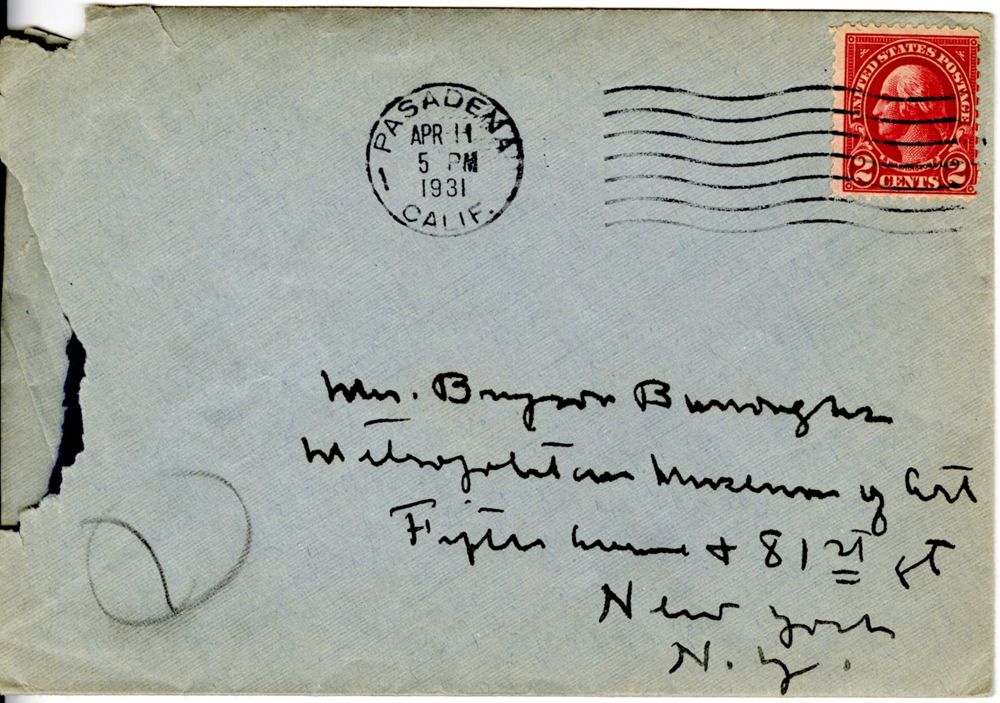 UNITED STATES POSTAGE
2 CENTS 2
1 PASADENA
APR 11
5 PM
1931
CALIF.
Mr. Bryson Burroughs
Metropolitan Museum of Art
Fifth Avenue & 81st St
New York
N.Y.